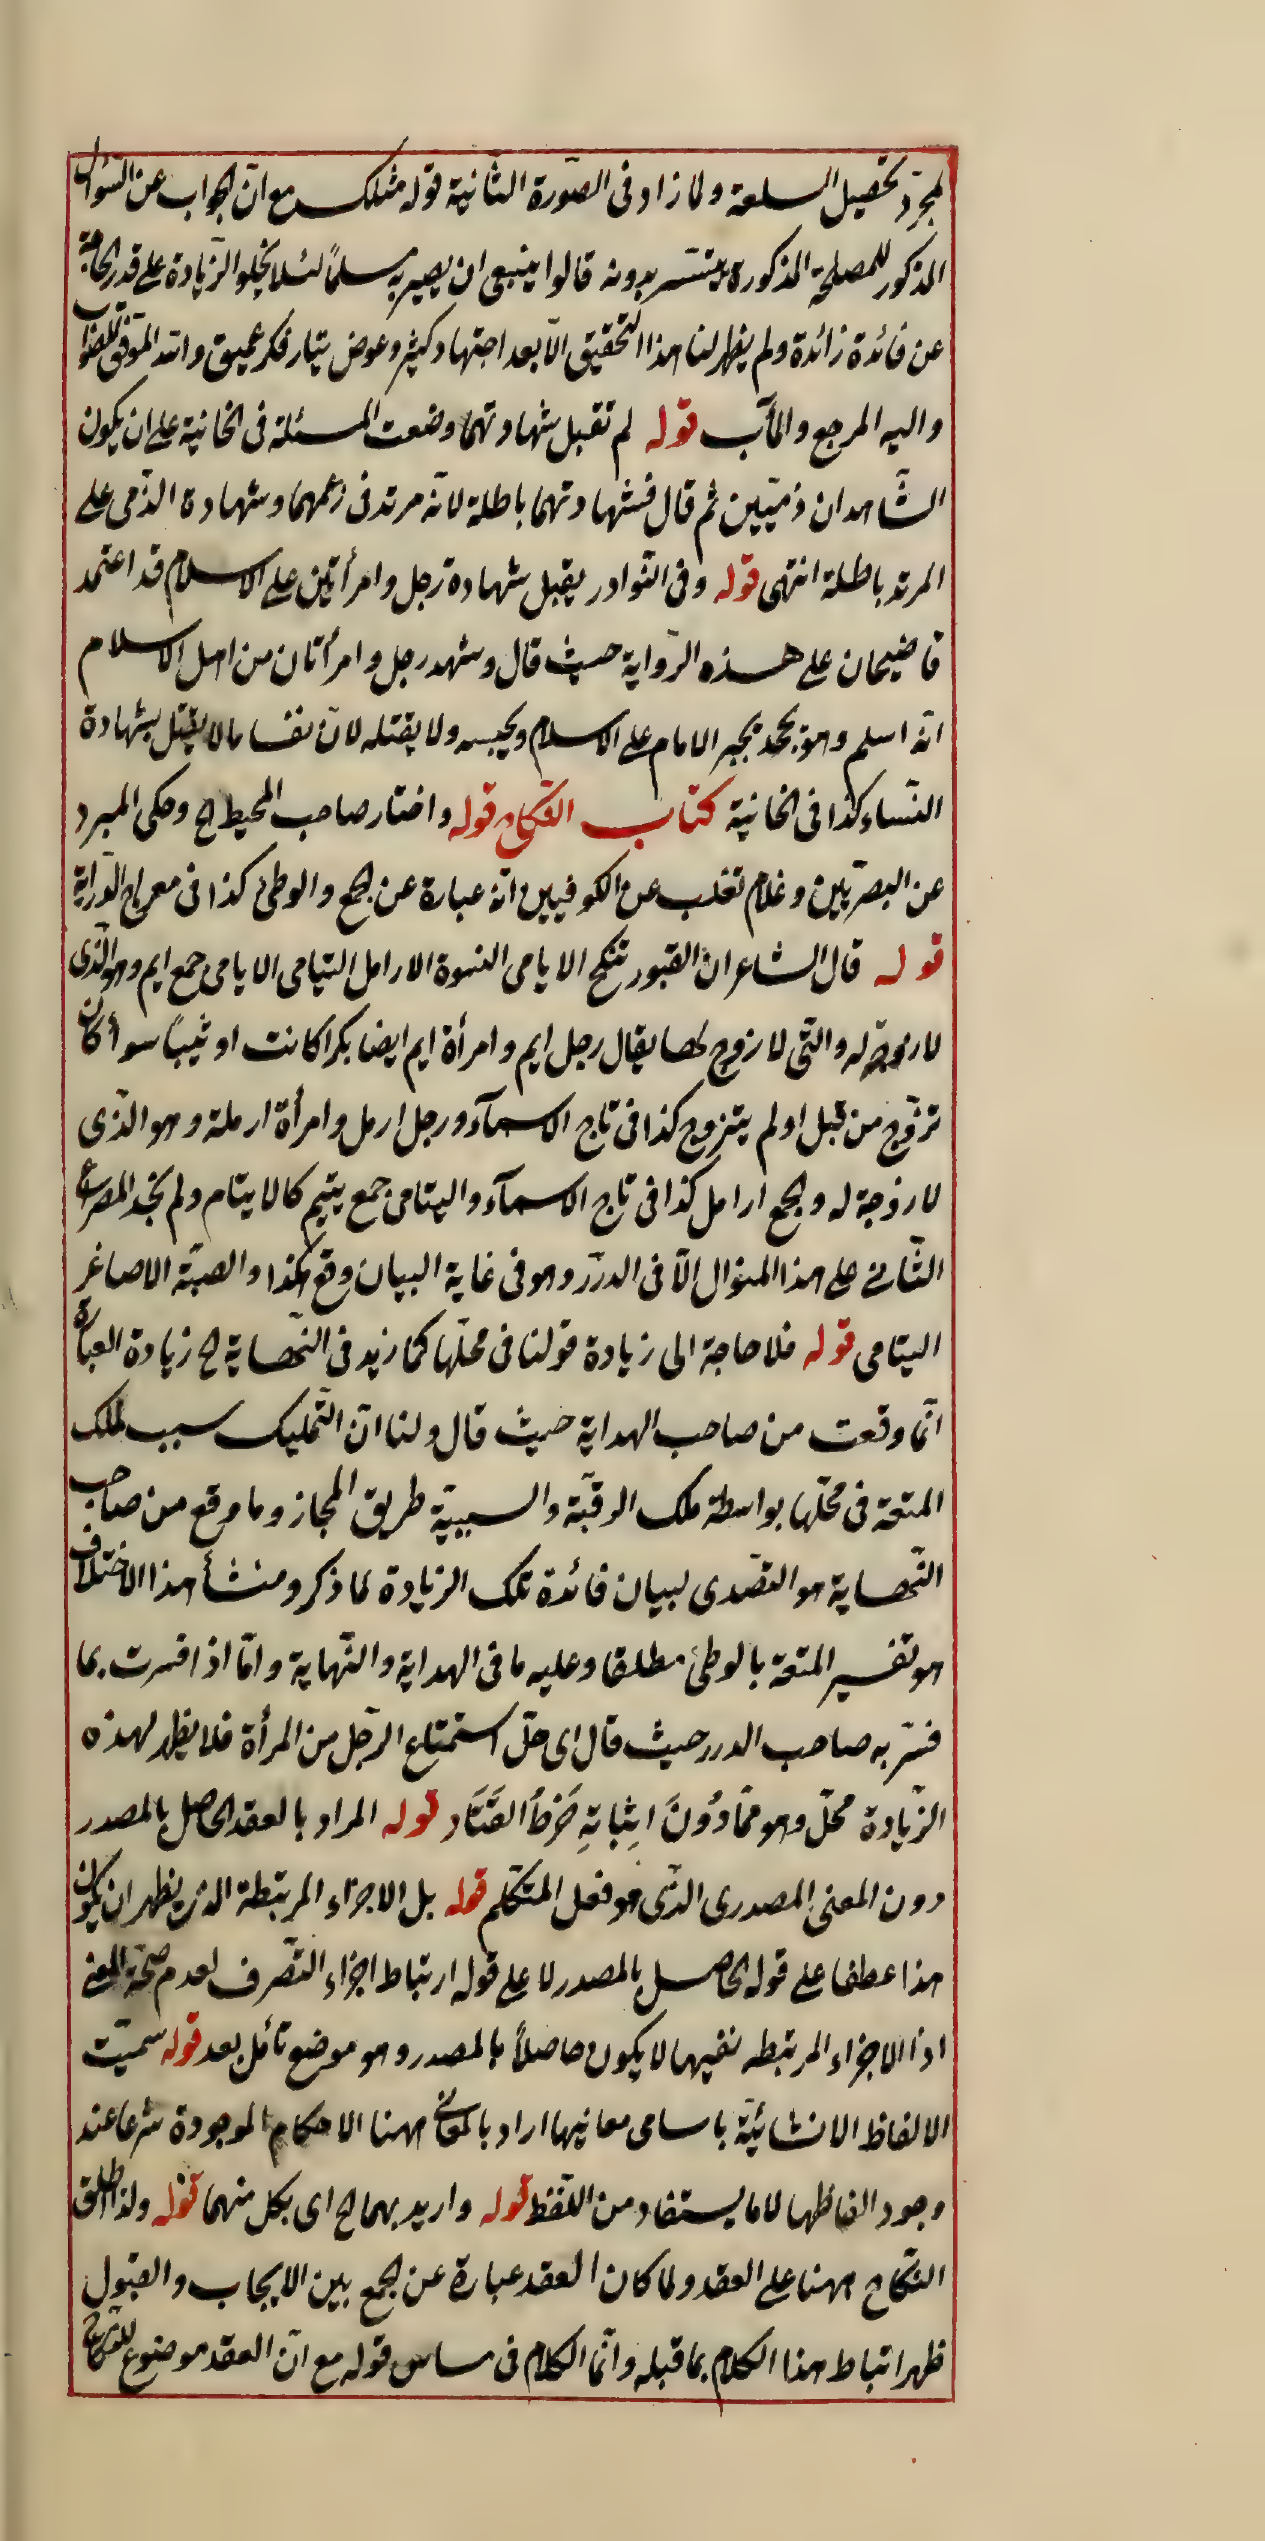 لمجرّد تحصيل السلعة ولما زاد فى الصّورة الثانية قوله مثلك مع انّ الجواب عن السّؤال
المذكور للمصلحة المذكورة يتيسّر بدونه قالوا ينبغى ان يصير به مسلمًا لئلا يخلو الزّيادة على قدر الحاجة
عن فائدة زائدة ولم يظهر لنا هذا التحقيق الّا بعد اجتهاد كثير وغوص تيّار فكر عميق والله الموفّق للصّواب
واليه المرجع والمآب قوله لم تقبل شهادتهما وضعت المسئلة فى الخانية على ان يكون
الشّاهدان ذمّيّين ثم قال فشهادتهما باطلة لانّه مرتد فى زعمهما وشهادة الذّمى على
المرتد باطلة انتهى قوله وفى النّوادر يقبل شهادة رجل وامرأتين على الاسلام قد اعتمد
قاضيخان على هذه الرّواية حيث قال وشهد رجل وامرأتان من اهل الاسلام
انّه اسلم وهو يجحد يجبر الامام على الاسلام ويحبسه ولا يقتله لانّ نفسا ما لا يقتل بشهادة
النّساء كذا فى الخانية كتاب النّكاح قوله واختار صاحب المحيط الخ وحكى المبرد
عن البصرّيين وغلام ثعلب عن الكوفيين انّه عبارة عن الجمع والوطئ كذا فى معراج الدّراية
قوله قال الشاعر انّ القبور تنكح الايامى النسوة الارامل اليتامى الايامى جمع ايم وهو الّذى
لا زوجة له والتّى لا زوج لها يقال رجل ايم وامرأة ايم ايضا بكرا كانت او ثيّبًا سوأ كان
تزوّج من قبل او لم يتزوج كذا فى تاج الاسمآء ورجل ارمل وامرأة ارملة وهو الذّى
لا زوجة له والجمع ارامل كذا فى تاج الاسمآء واليتامى جمع يتيم كالايتام ولم نجد المصراع
الثّانى على هذا المنوال الّا فى الدرّر وهو فى غاية البيان وقع هكذا والصبّية الاصاغر
اليتامى قوله فلا حاجة الى زيادة قولنا فى محلّها كما زيد فى النّهاية الخ زيادة العبارة
انّما وقعت من صاحب الهداية حيث قال ولنا انّ التّمليك سبب لملك
المتعة فى محلّها بواسطة ملك الرقبّة والسببيّة طريق المجاز وما وقع من صاحب
النّهاية هو التصّدى لبيان فائدة تلك الزيادة لما ذكر ومنشأ هذا الاختلاف
هو تفسير المتعة بالوطئ مطلقا وعليه ما فى الهداية والنّهاية وامّا اذا فسرت بما
فسّر به صاحب الدرر حيث قال اى حلّ استمتاع الرّجل من المرأة فلا يظهر لهذه
الزّيادة محلّ وهو ممّا دُونَ اثباتهِ خَرْطُ القَتَاد قوله المراد بالعقد الحاصل بالمصدر
دون المعنى المصدرى الذّى هو فعل المتكلّم قوله بل الاجزاء المرتبطة الذى يظهر ان يكون
هذا عطفا على قوله الحاصل بالمصدر لا على قوله ارتباط اجزاء التصّرف لعدم صحّة المعنى
اذ الاجزاء المرتبطه نفيها لا يكون حاصلاً بالمصدر وهو موضع تأمّل بعد قوله سميّت
الالفاظ الانشائيّة باسامى معانيها اراد بالمعانى ههنا الاحكام الموجودة شرعا عند
وجود الفاظها لا ما يستفاد من اللّفظ قوله واريد بهما الخ اى بكل منهما قوله ولذا اطلق
النّكاح ههنا على العقد ولما كان العقد عبارة عن الجمع بين الايجاب والقبول
ظهر اتباط هذا الكلام بما قبله وانّما الكلام فى مساس قوله مع انّ العقد موضوع للنّكاح